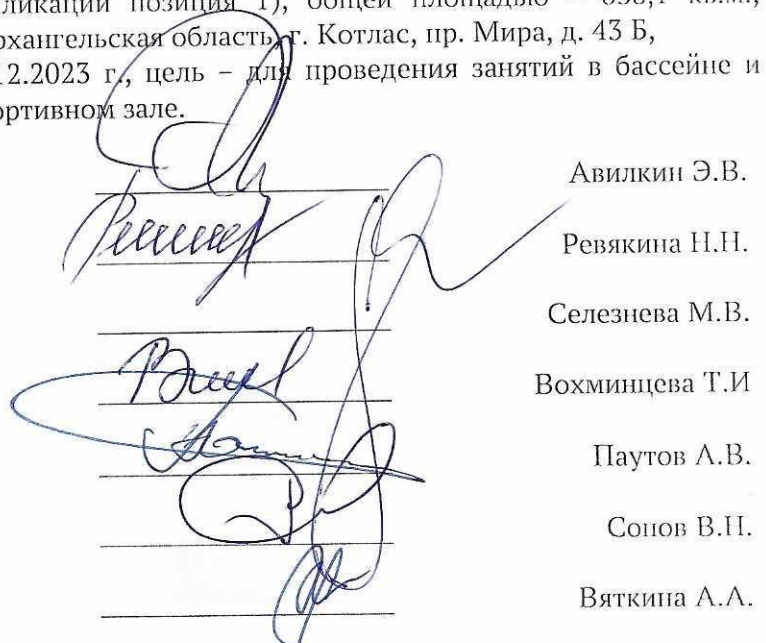 пликации позиция 1), общей площадью – 698,1 кв.м.,
рхангельская область, г. Котлас, пр. Мира, д. 43 Б,
12.2023 г., цель – для проведения занятий в бассейне и
ортивном зале.
Авилкин Э.В.
Ревякина Н.Н.
Селезнева М.В.
Вохминцева Т.И
Паутов А.В.
Сонов В.Н.
Вяткина А.А.